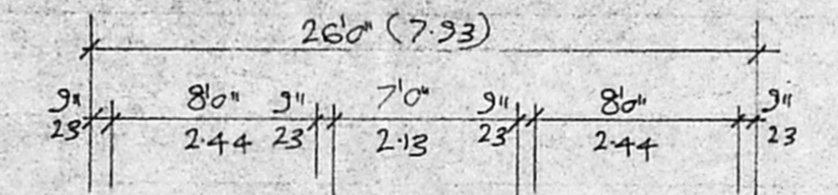 26'0" (7.93)
9" 8'0" 9" 7'0" 9" 8'0" 9"
23 2.44 23 2.13 23 2.44 23